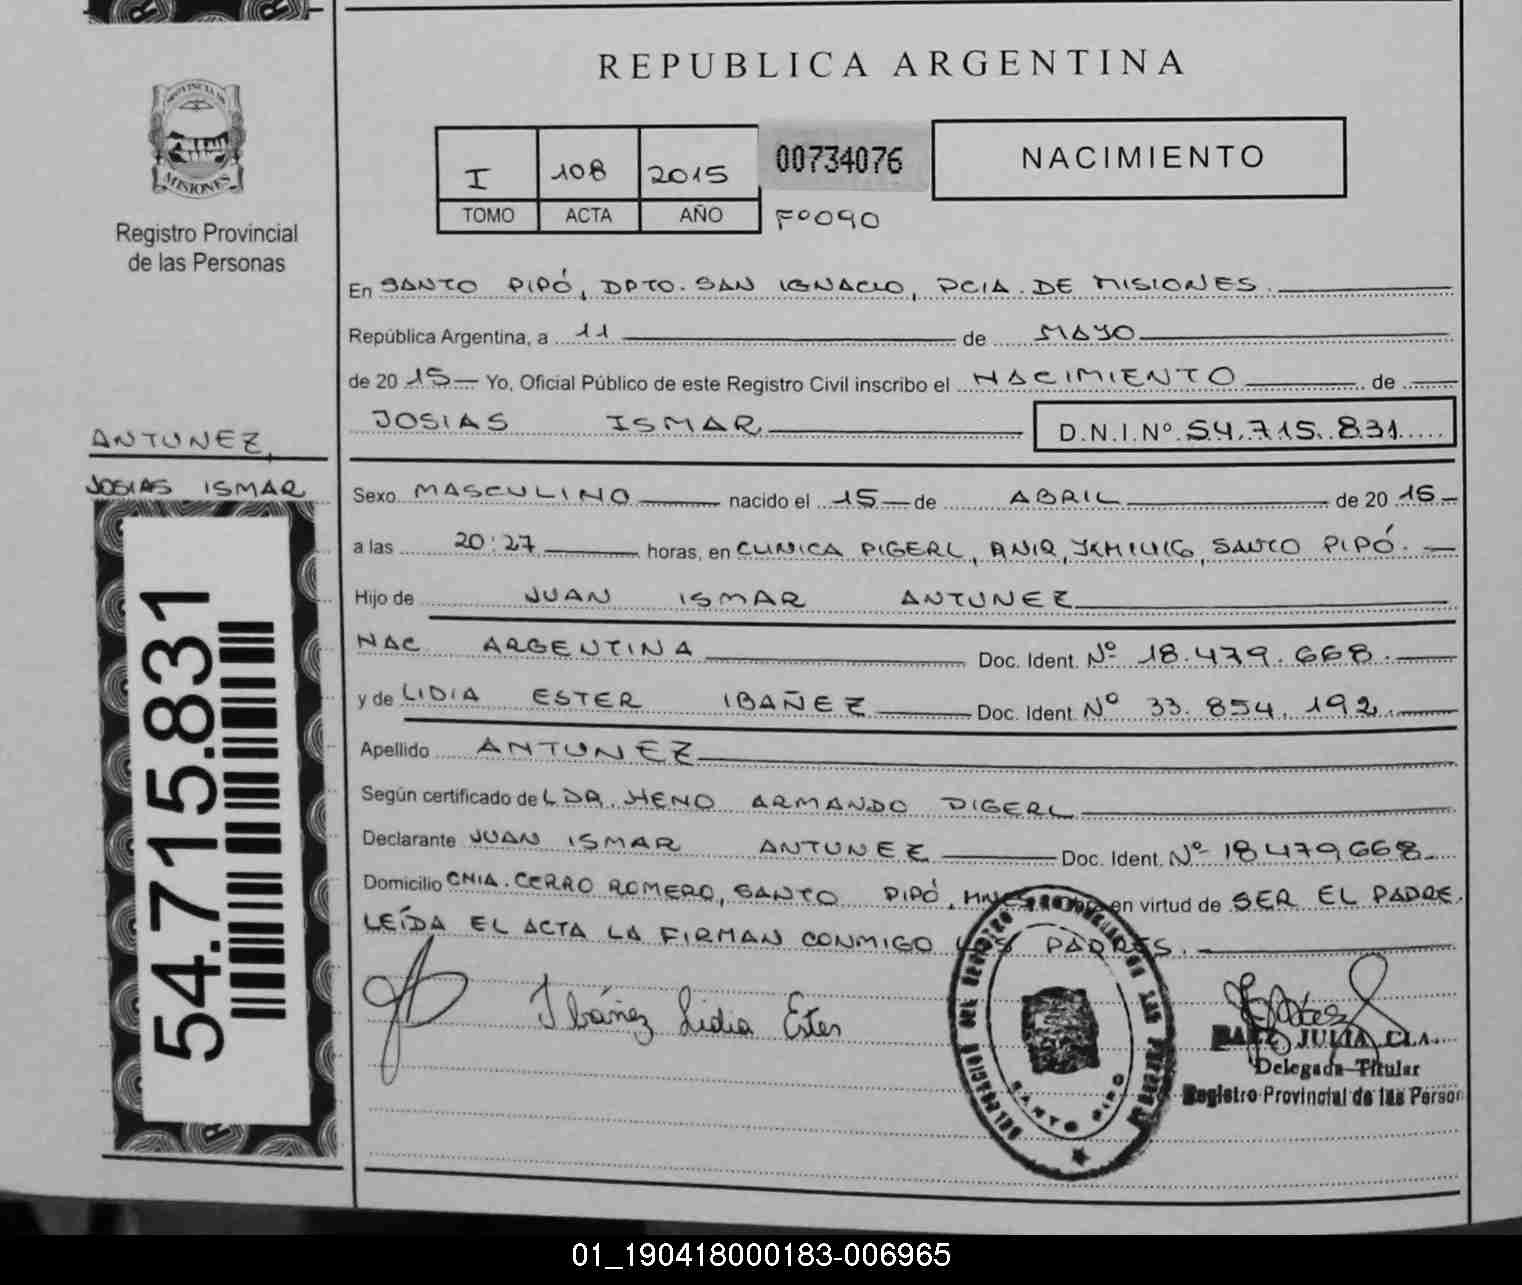 REPUBLICA ARGENTINA
PROVINCIA DE
MISIONES
Registro Provincial
de las Personas
I 108 2015 00734076
TOMO ACTA AÑO Fº090
NACIMIENTO
En SANTO PIPÓ, DPTO. SAN IGNACIO, PCIA. DE MISIONES.
República Argentina, a 11 de MAYO
de 2015 Yo, Oficial Público de este Registro Civil inscribo el NACIMIENTO de
JOSIAS ISMAR D.N.I.Nº 54.715.831
ANTUNEZ,
JOSIAS ISMAR
54.715.831
Sexo MASCULINO nacido el 15 de ABRIL de 2015
a las 20:27 horas, en CLINICA PIGERL, SANTO PIPÓ.
Hijo de JUAN ISMAR ANTUNEZ
NAC ARGENTINA Doc. Ident. Nº 18.479.668
y de LIDIA ESTER IBAÑEZ Doc. Ident. Nº 33.854.192
Apellido ANTUNEZ
Según certificado de HENO ARMANDO PIGERL
Declarante JUAN ISMAR ANTUNEZ Doc. Ident. Nº 18479668
Domicilio CNIA. CERRO ROMERO, SANTO PIPÓ, MNES Obra en virtud de SER EL PADRE.
LEÍDA EL ACTA LA FIRMAN CONMIGO LOS PADRES.
Ibáñez Lidia Ester
DELEGACION DEL REGISTRO PROVINCIAL DE LAS PERSONAS
SANTO PIPO
JULIA
Delegada Titular
Registro Provincial de las Person
01_190418000183-006965